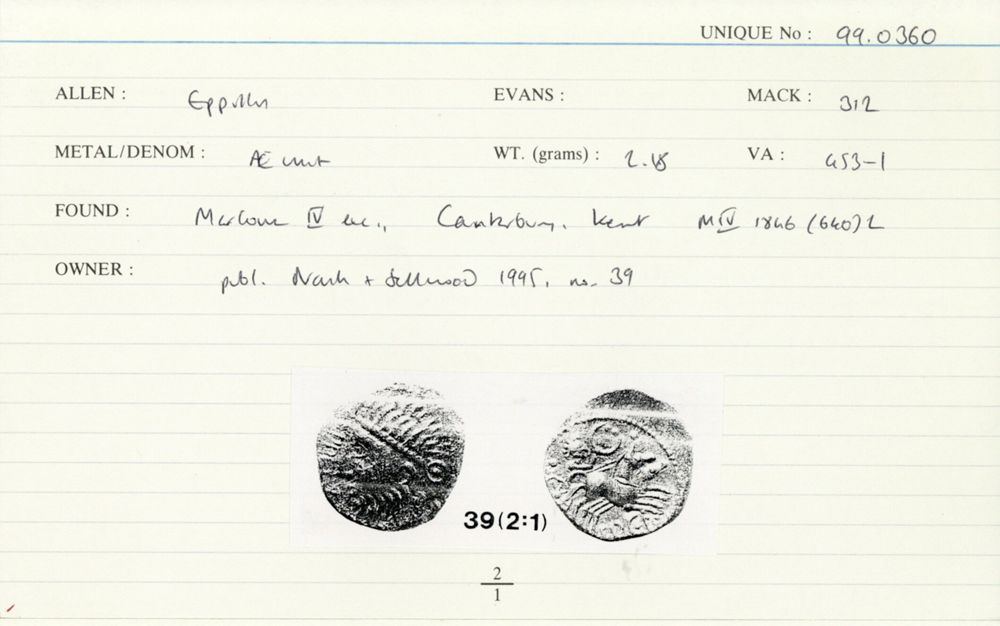 UNIQUE No : 99.0360
ALLEN : Eppillus EVANS : MACK : 312
METAL/DENOM : AE unit WT. (grams) : 2.18 VA : 453-1
FOUND : Marlowe IV exc., Canterbury, Kent MIV 1846 (640) 2
OWNER : publ. Nash + Sellwood 1995, no. 39
39 (2:1)
2
1